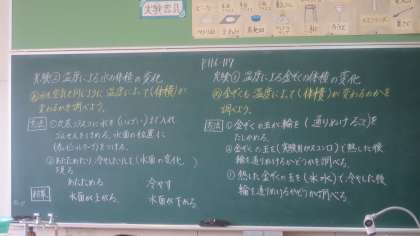 P.116-119
実験② 温度による水の体積の変化
問 水も空気と同じように温度によって(体積)が
変わるかを調べよう。
方法 ① 丸底フラスコに水を(いっぱい)まで入れ
ゴムせんをさしこむ。水面の位置に
をつける。
② あたためたり、冷やしたりして(水面の変化)を
見る
あたためる 冷やす
結果 水面が上がる。 水面が下がる。
実験③ 温度による金ぞくの体積の変化
問 金ぞくも温度によって(体積)が変わるのかを
調べよう。
方法 ① 金ぞくの玉が輪を(通りぬけること)を
たしかめる。
② 金ぞくの玉を(実験用ガスコンロ)で熱した後
輪を通りぬけるかどうかを調べる。
③ 熱した金ぞくの玉を(氷水)で、冷やした後
輪を通りぬけるかどうか調べる。